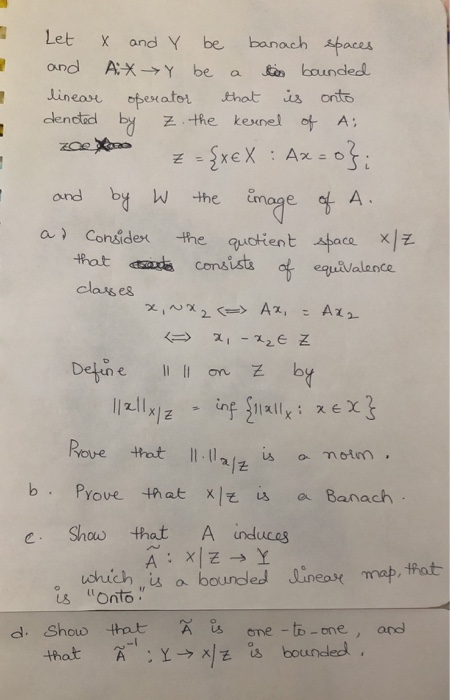 Let X and Y be banach spaces
and A: X → Y be a bounded
linear operator that is onto
denoted by Z the kernel of A;
Z = {x ∈ X : Ax = 0};
and by W the image of A.
a) Consider the quotient space X/Z
that consists of equivalence
classes
x₁ ~ x₂ <=> Ax₁ = Ax₂
<=> x₁ - x₂ ∈ Z
Define || || on Z by
||x||x/z = inf {||x||x : x ∈ X}
Prove that ||.||x/z is a norm.
b. Prove that X/Z is a Banach.
c. Show that A induces
Ã : X/Z → Y
which is a bounded linear map, that
is "Onto."
d. Show that Ã is one-to-one, and
that Ã⁻¹ : Y → X/Z is bounded.